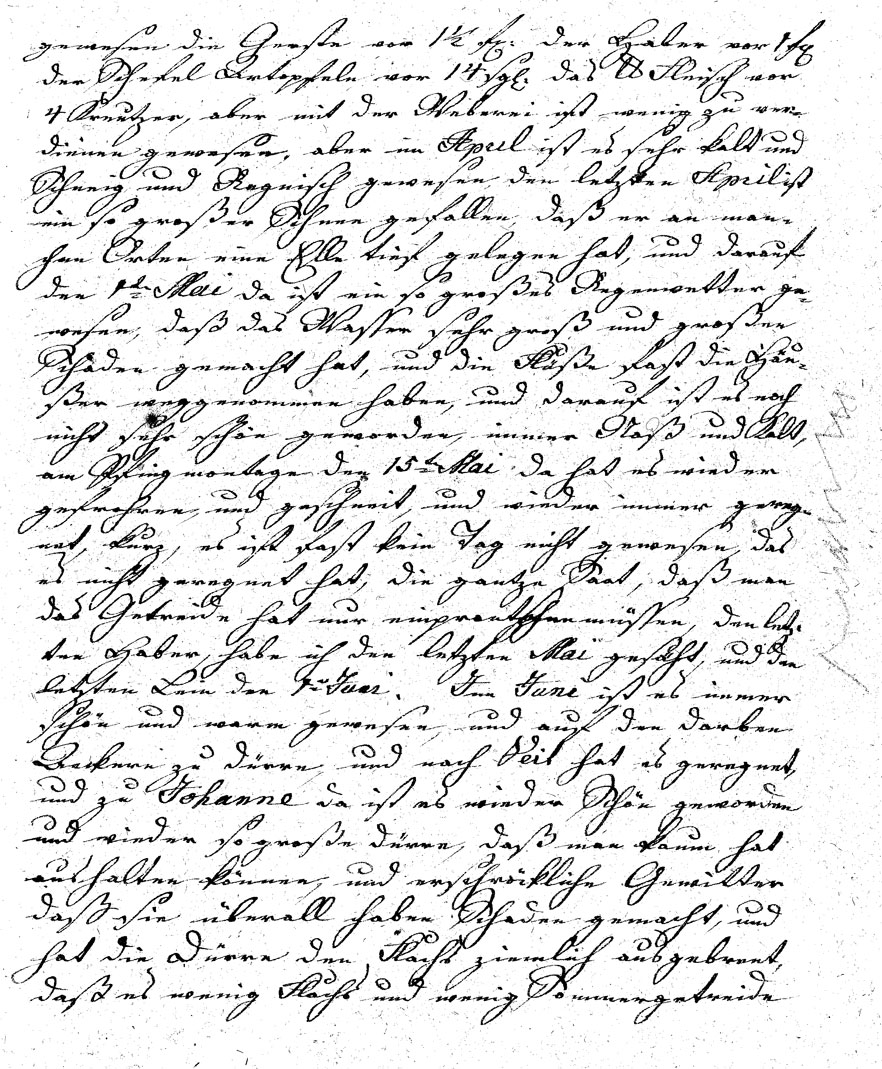 gewesen die Gerste vor 1½ fx: der Haber vor 1 fx
der Schefel Ertopfeln vor 14 sgl. das ℔ Fleisch vor
4 Kreutzer, aber mit der Weberei ist wenig zu ver-
dienen gewesen, aber im April ist es sehr kalt und
Schneig und Regnisch gewesen, den letzten April ist
ein so großer Schnee gefallen, daß er an man-
chen Orten eine Elle tief gelegen hat, und darauf
den 1ten Mai da ist ein so großes Regenwetter ge-
wesen, daß das Wasser sehr groß und großen
Schaden gemacht hat, und die Flöße fast die Häu-
ßer weggenommen haben, und darauf ist es noch
nicht sehr schön geworden, immer Naß und Kalt,
am Pfingmontage den 15ten Mai da hat es wieder
gefrohren, und geschneit, und wieder immer gereg-
net, kurz, es ist fast kein Tag nicht gewesen, das
es nicht geregnet hat, die gantze Saat, daß man
das Getreide hat nur müssen, den letz-
ten Haber, habe ich den letzten Mai gesäht, und den
letzten Lein den Juni. Im Juni ist es immer
schön und warm gewesen, und auf den darben
Aeckern zu dürre, und nach Veit hat es geregnet,
und zu Johanne da ist es wieder Schön geworden
und wieder so große dürre, daß man kaum hat
aushalten können, und erschröckliche Gewitter
daß sie überall haben Schaden gemacht, und
hat die Dürre den Flachs ziemlich ausgebrent,
daß es wenig Flachs und wenig Sommergetreide